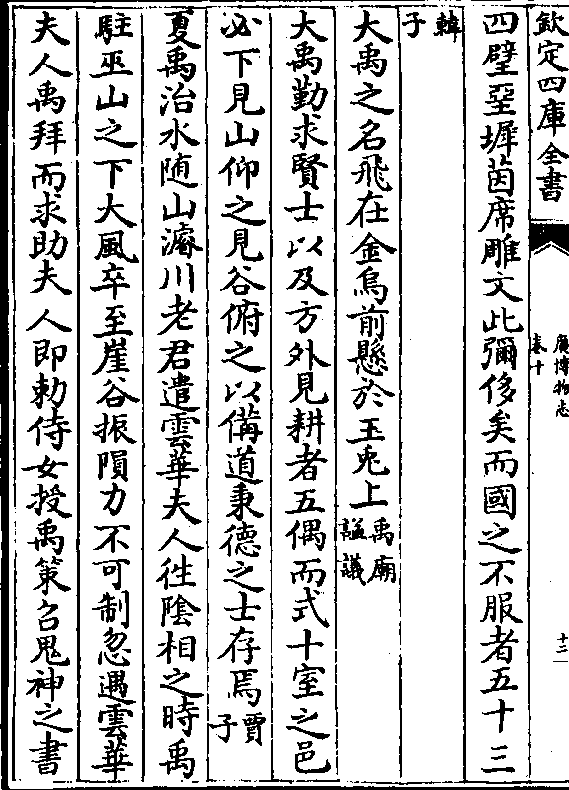 欽定四庫全書
廣博物志
卷十
十二
四壁堊墀茵席雕文此彌侈矣而國之不服者五十三
韓子
大禹之名飛在金烏前懸於玉兎上禹廟謚議
大禹勤求賢士以及方外見耕者五偶而式十室之邑
必下見山仰之見谷俯之以備道秉德之士存焉賈子
夏禹治水随山濬川老君遣雲華夫人徃隂相之時禹
駐巫山之下大風卒至崖谷振隕力不可制忽遇雲華
夫人禹拜而求助夫人即勅侍女授禹策召鬼神之書